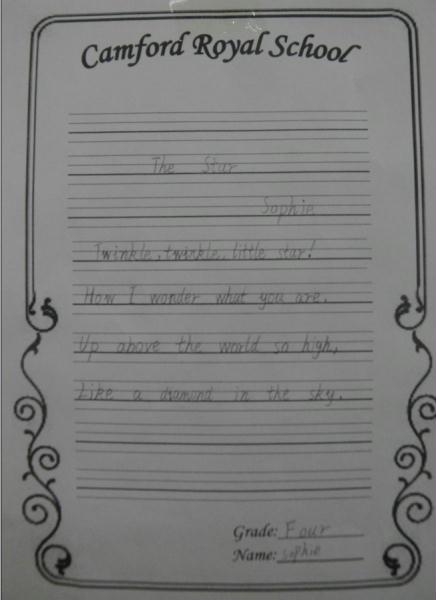 Camford Royal School
The Star
Sophie
Twinkle, twinkle, little star!
How I wonder what you are.
Up above the world so high,
Like a diamond in the sky.
Grade: Four
Name: Sophie